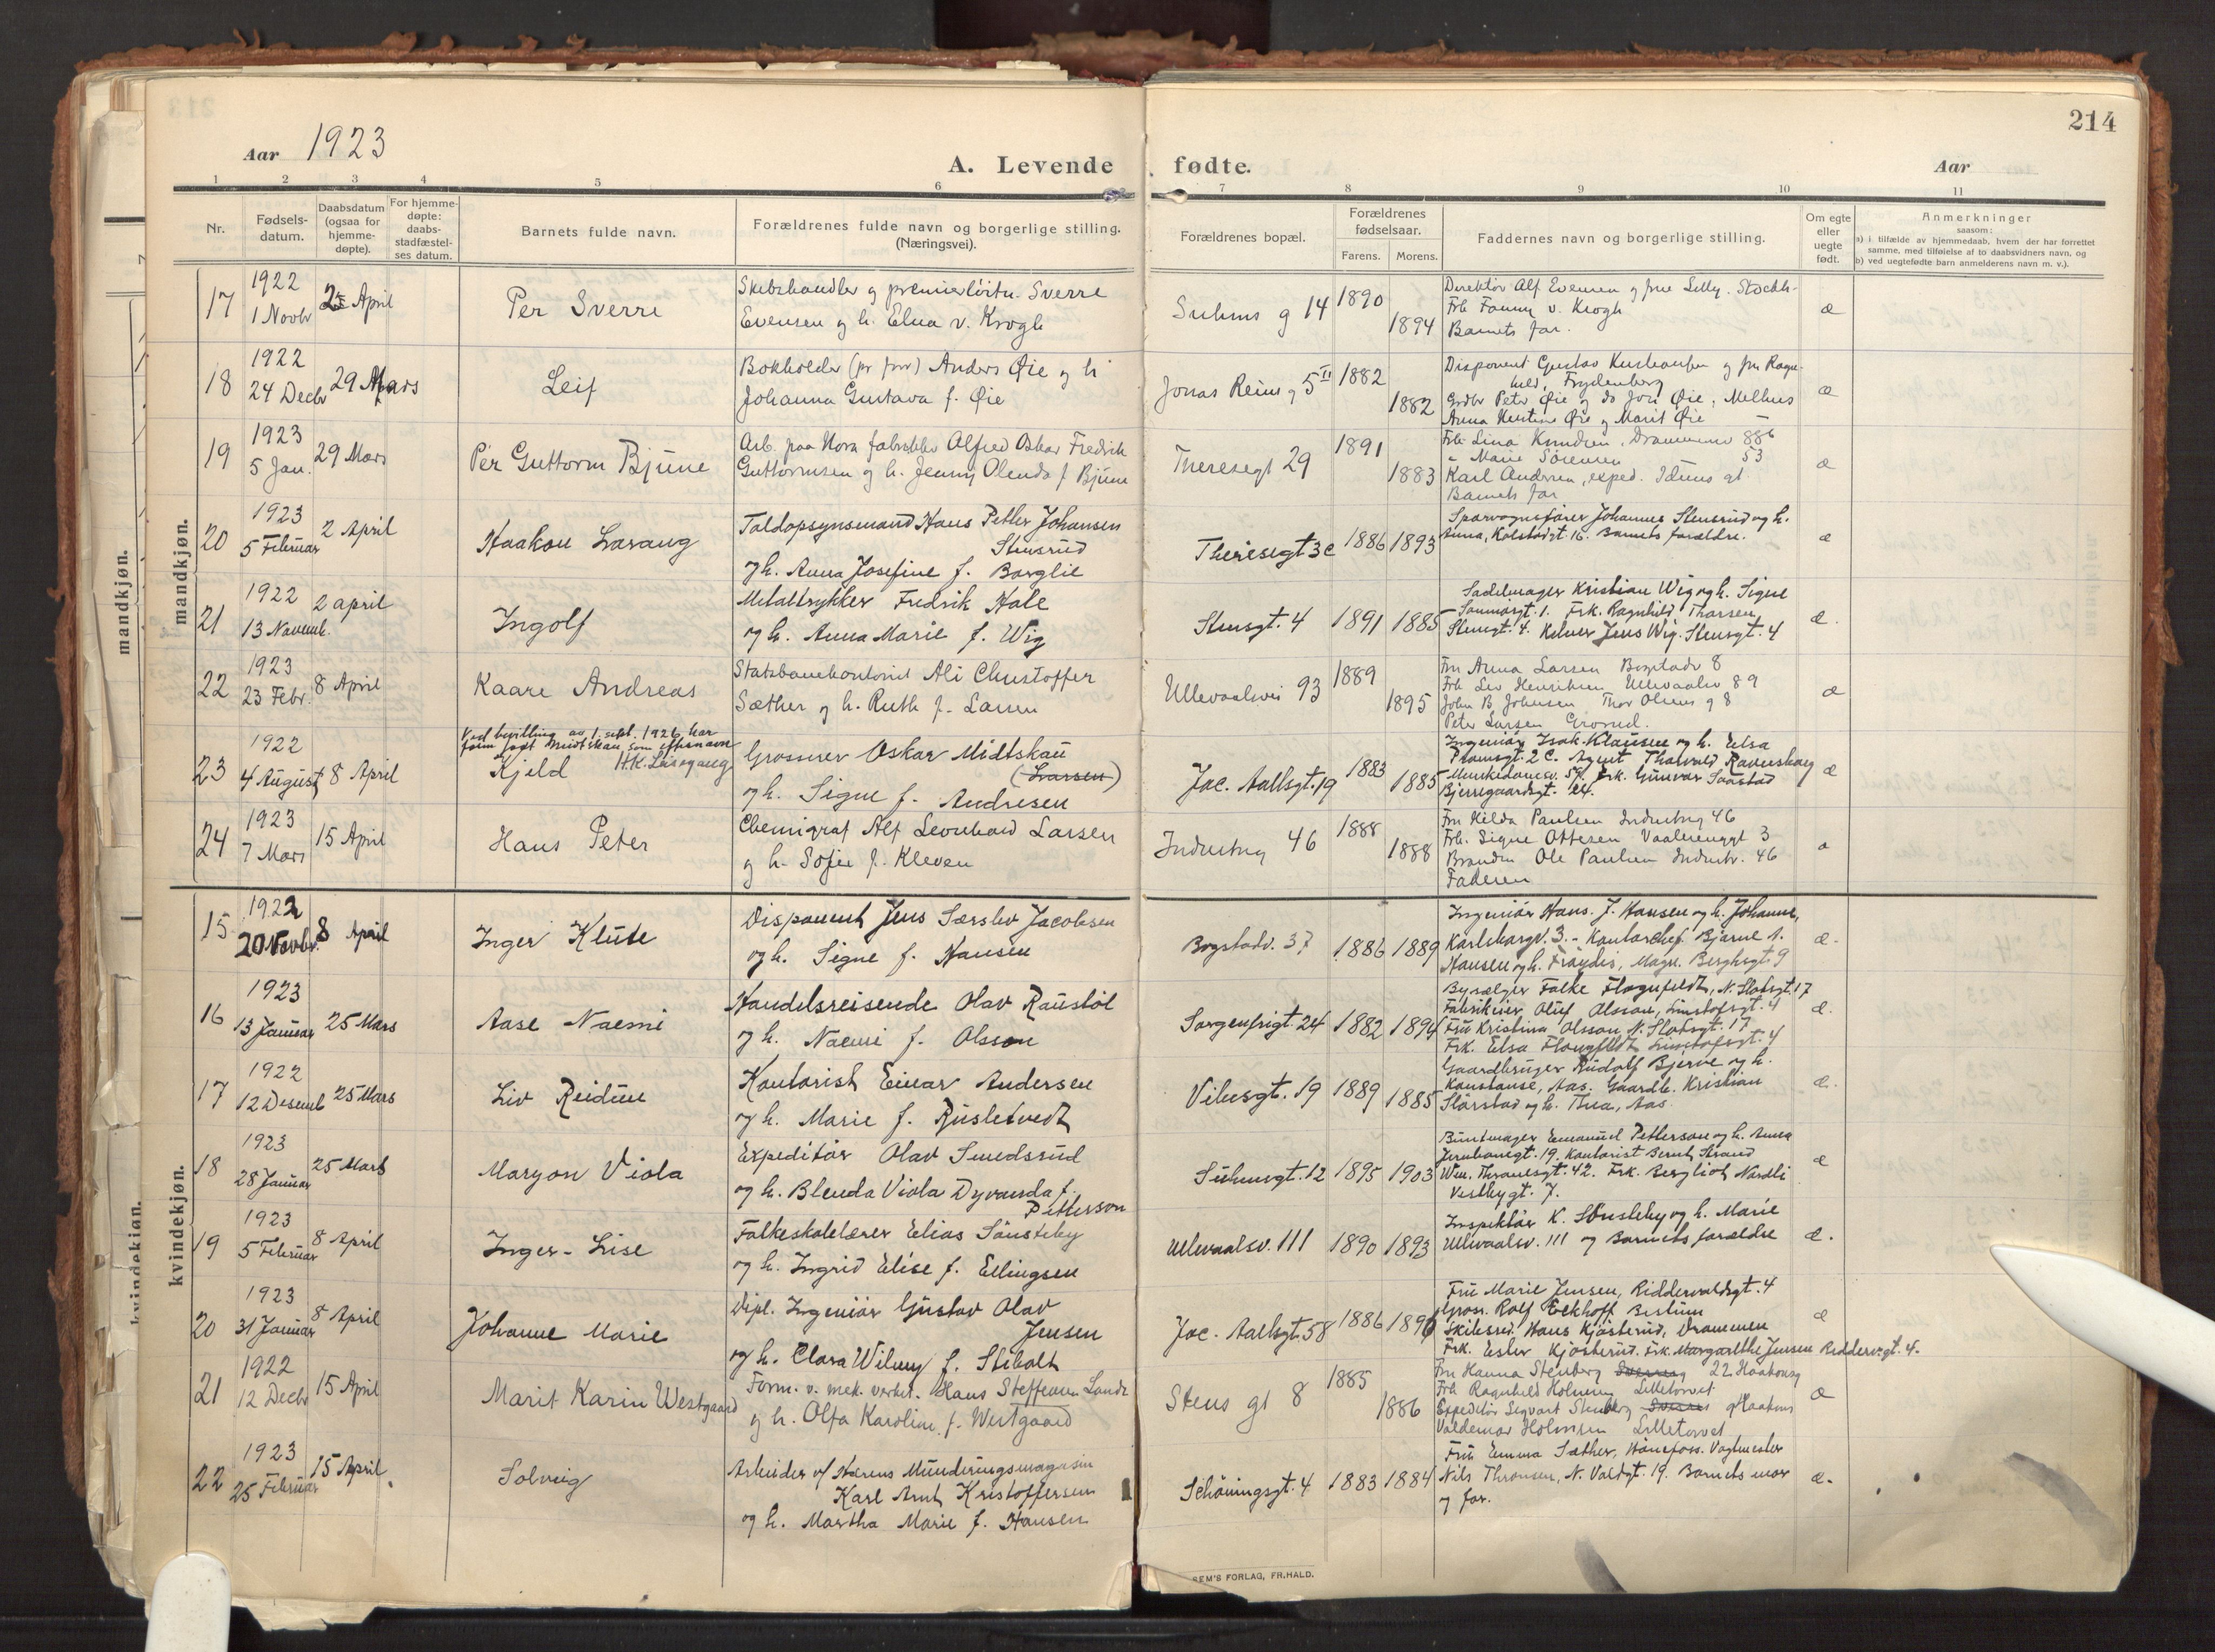 214
Aar 1923
A. Levende fødte.
Aar
1 2 3 4 5 6 7 8 9 10 11
Nr.
Fødsels-
datum.
Daabsdatum
(ogsaa for
hjemme-
døpte).
For hjemme-
døpte:
daabs-
stadfæstel-
ses datum.
Barnets fulde navn.
Forældrenes fulde navn og borgerlige stilling.
(Næringsvei).
Forældrenes bopæl.
Forældrenes
fødselsaar.
Farens. Morens.
Faddernes navn og borgerlige stilling.
Om egte
eller
uegte
født.
Anmerkninger
saasom:
a) i tilfælde av hjemmedaab, hvem der har forrettet
samme, med tilføielse af to daabsvidners navn, og
b) ved uegtefødte barn anmelderens navn m. v.).
mandkjøn.
mandkjøn.
17
1922
1 Novbr
April
Per Sverre
Skibshandler og premierløitn. Sverre
Evensen og h. Elna v. Krogh
Suhms g 14
1890
1894
Direktør Alf Evensen og frue Lilly.
Frk Fanny v. Krogh
Barnets far.
æ
18
1922
24 Decbr
29 Mars
Leif
Bokholder Anders Øie og h
Johanna Gustava f. Øie
Jonas Reins g 5 II
1882
1882
Disponent Gustav og fru Ragn-
hild, Frydenberg
Grdbr Peter Øie og do Jon Øie, Melhus
Anna Kirstine Øie og Marit Øie
æ
19
1923
5 Jan.
29 Mars
Per Guttorm Bjune
Arb. paa Nora fabrikker Alfred Oskar Fredrik
Guttormsen og h. Jenny Olenda f Bjune
Theresegt 29
1891
1883
Frk Lina Knudsen, Drammensv 88b
" Marie Sørensen 53
Karl Andersen, exped. Iduns gt
Barnets far
æ
20
1923
5 Februar
2 April
Haakon
Toldopsynsmand Hans Petter Johansen
Stensrud
og h. Anna Josefine f. Borglie
Theresegt 3c
1886 1893
Sporvognsfører Johannes Stensrud og h.
Anna, 16. Barnets forældre.
æ
21
1922
13 Novemb.
2 april
Ingolf
Metaltrykker Fredrik Hole
og h. Anna Marie f. Wig
Stensgt. 4
1891 1885
Sadelmager Kristian Wig og h. Signe
1. Frk. Ragnhild Thorsen
Stensgt. 4. Kelner Jens Wig. Stensgt. 4
æ.
22
1923
23 Febr.
8 April
Kaare Andreas
Statsbanekontorist Ali Christoffer
Sæther og h. Ruth f. Larsen
Ullevaalsvei 93
1889
1895
Fru Anna Larsen Bogstadv 8
Frk Henriksen Ullevaalsv 89
John B Johansen Thor Olsens g 8
Peter Larsen Grorud.
æ
23
1922
4 August
8 April
Ved bevilling av 1. sept. 1926 har
faaet Midtskau som efternavn
H.K.
Kjeld
Grosserer Oskar Midtskau
(Larsen)
og h. Signe f. Andresen
Jac. Aallsgt. 19
1883
1885
Ingeniør Isak Klausen og h. Elsa
2 C. Agent Thorvald Ravenskog
Munkedamsv. Frk. Gunvor
Bjerregaardsgt. 24.
æ
24
1923
7 Mars
15 April
Hans Peter
Chemigraf Alf Leonhard Larsen
og h. Sofie f. Kleven
Industrig 46
1888
1888
Fru Hilda Paulsen Industrig 46
Frk. Signe Ottesen Vaalerenggt 3
Ole Paulsen Industr. 46
Faderen
kvindekjøn.
kvindekjøn.
15
1922
20 Novbr.
8 April
Inger Klute
Disponent Jens Særslev Jacobsen
og h. Signe f. Hansen
Bogstadv. 37
1886 1889
Ingeniør Hans. J. Hansen og h. Johanne,
3. - Kontorchef Bjarne A.
Hansen og h. Frøydis, Magn. Berghsgt. 9
æ.
16
1923
13 Januar
25 Mars
Aase Naemi
Handelsreisende Olav Raustøl
og h. Naemi f. Olsson
Sorgenfrigt. 24
1882 1894
Falke Flognfeldt, N. Slotsgt. 17
Fabrikeier Oluf Olsson, 4
Fru Kristina Olsson N. Slotsgt. 17
Frk. Elsa Flognfeldt 4
æ.
17
1922
12 Desemb
25 Mars
Liv Reidun
Kontorist Einar Andersen
og h. Marie f. Rusletvedt
Vibesgt. 19
1889 1885
Gaardbruger Rudolf Bjerve og h.
Konstanse, Aas. Gaardb. Kristian
og h. Thea, Aas.
æ.
18
1923
28 Januar
25 Mars
Maryon Viola
Expeditør Olav Smedsrud
og h. Blenda Viola Dyvanda f.
Petterson
Suhmsgt. 12
1895 1903
Buntmager Emanuel Petterson og h. Anna
Jernbanegt. 19. Kontorist Bernt Strand
Wm. Thranesgt. 42. Frk. Bergliot Nordli
Vestbygt. 7.
æ
19
1923
5 Februar
8 April
Inger-Lise
Folkeskolelærer Elias Sønsteby
og h. Ingrid Elise f. Ellingsen
Ullevaalsv. 111
1890 1893
Inspektør K. Sønsteby og h. Marie
Ullevaalsv. 111 og Barnets forældre
æ.
20
1923
31 Januar
8 April
Johanne Marie
Dipl. Ingeniør Gustav Olav
Jensen
og h. Clara Wilmy f. Stibolt
Jac. Aallsgt. 58
1886 1896
Fru Marie Jensen, Riddervoldsgt. 4
Gross. Rolf Eckhoff Bestum
Skibsred. Hans Kjøsterud, Drammen
Frk. Ester Kjøsterud. Frk. Margarethe Jensen Riddervgt. 4.
æ
21
1922
12 Decbr
15 April
Marit Karin Westgaard
Form. v. mek. verkst. Hans Steffensen Lande
og h. Olfa Karoline f. Westgaard
Stens gt 8
1885
1886
Fru Hanna Stenberg 22 Haakonsg
Frk Ragnhild Holmsen Lilletorvet
Expeditør Sigvart Stenberg Haakons
Valdemar Holmsen Lilletorvet
æ
22
1923
25 Februar
15 April
Solveig
Arbeider v/ Hærens Munderingsmagasin
Karl Arnt Kristoffersen
og h. Martha Marie f. Hansen
Schøningsgt. 4
1883 1884
Fru Emma Sæther, Hønefoss. Vagtmester
Nils Thronsen, N. Valdgt. 19. Barnets mor
og far.
æ.
SEM'S FORLAG, FR.HALD.